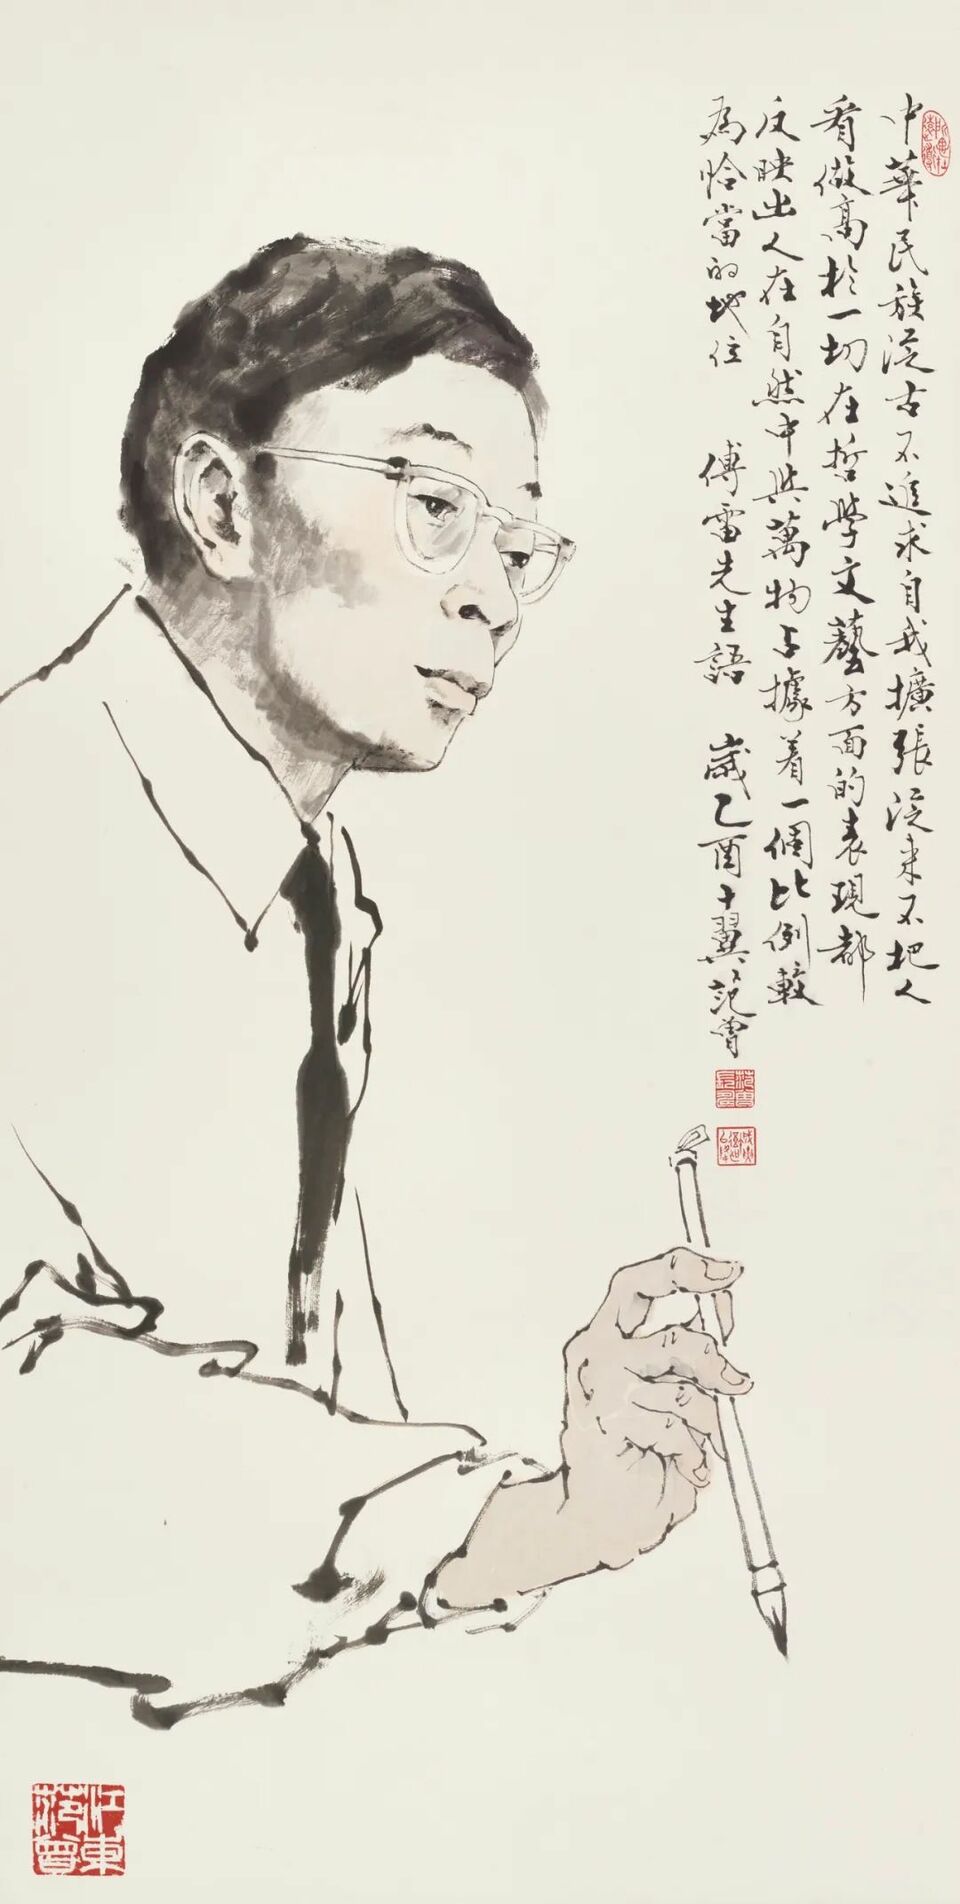 中華民族從古不追求自我擴張從來不把人
看做高於一切在哲學文藝方面的表現都
反映出人在自然中與萬物占據着一個比例較
為恰當的地位 傅雷先生語 歲乙酉十翼范曾
江東
范曾